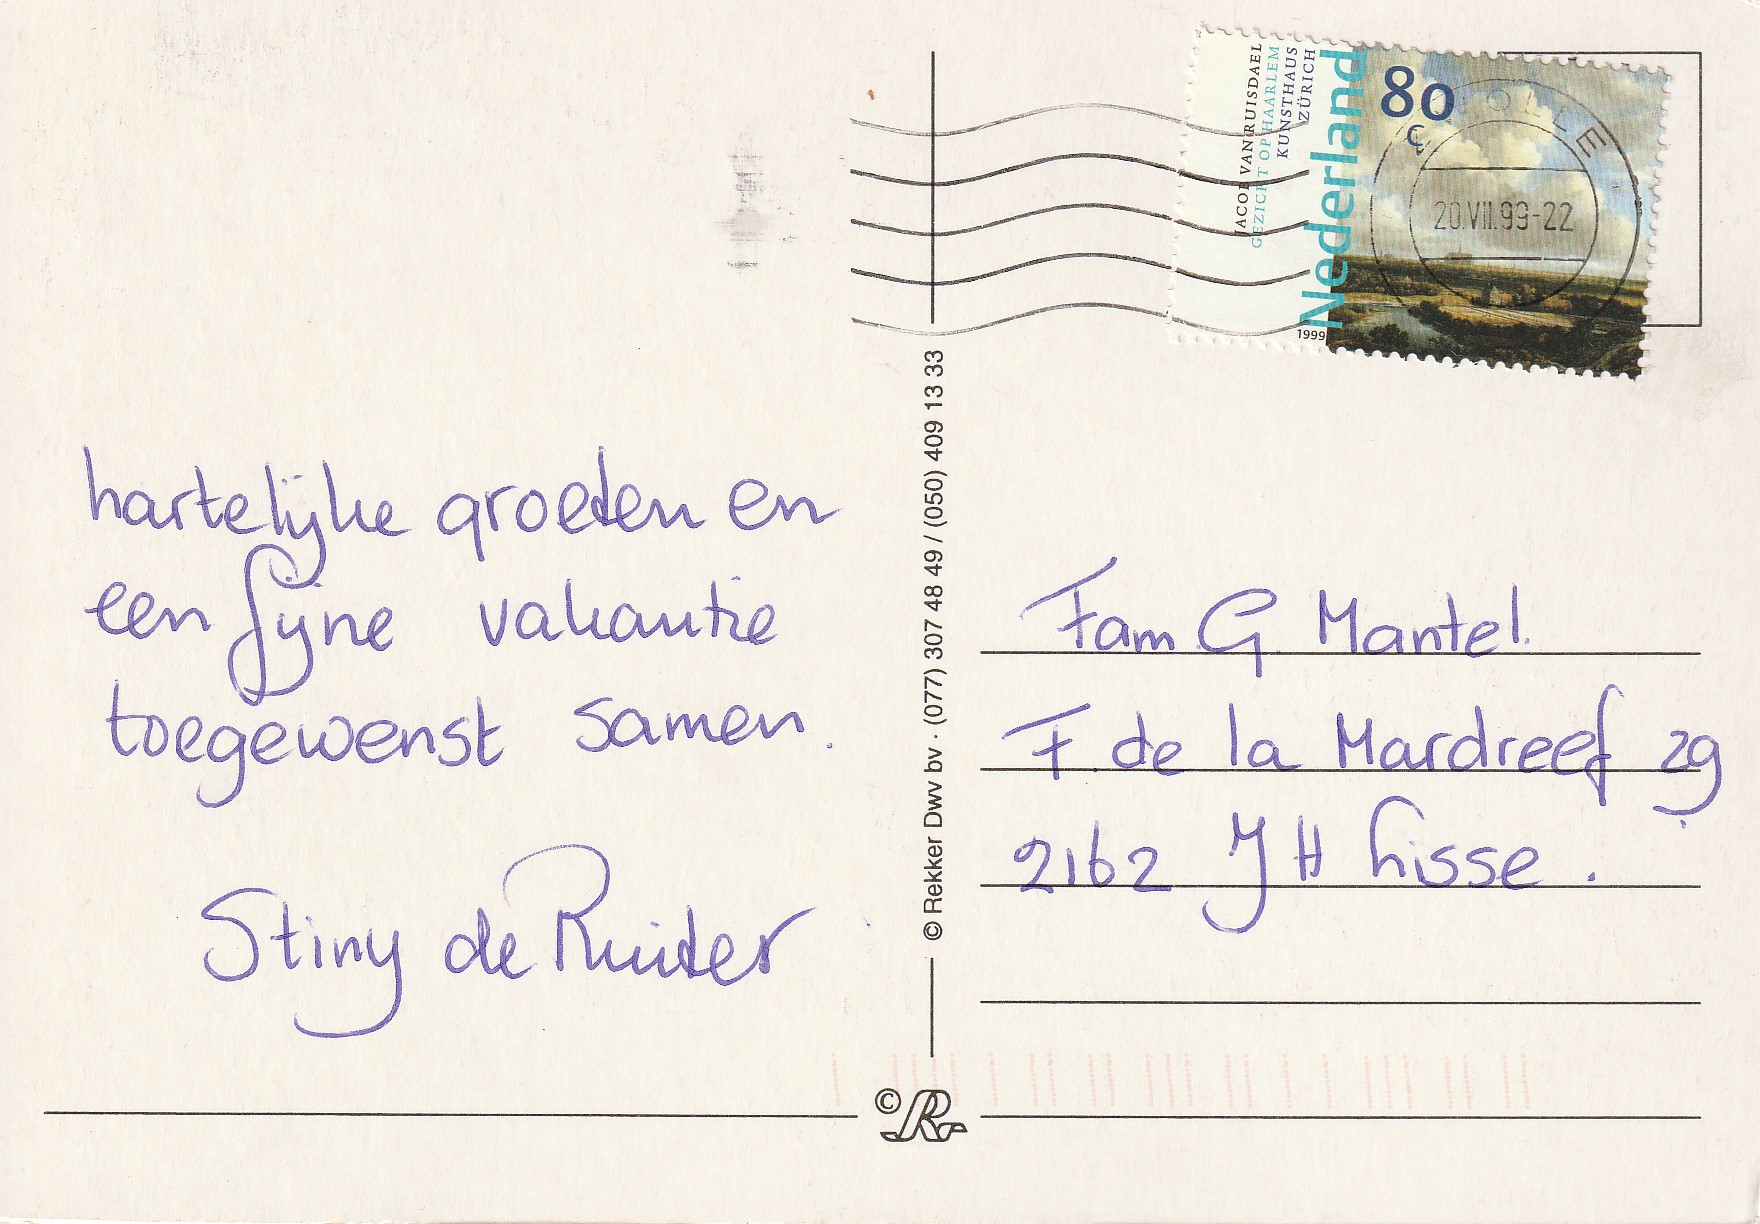 hartelijke groeten en
een fijne vakantie
toegewenst samen.
Stiny de Ruiter
© Rekker Dwv bv · (077) 307 48 49 / (050) 409 13 33
JACOB VAN RUISDAEL
GEZICHT OP HAARLEM
KUNSTHAUS
ZÜRICH
Nederland
1999
80
c
20.VII.99-22
Fam G Mantel.
F de la Mardreef 29
2162 JH Lisse.
© R